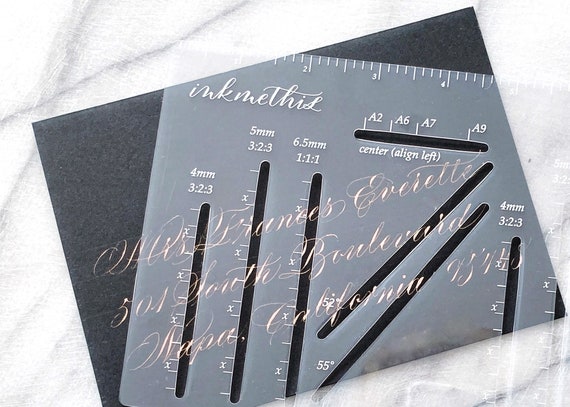 2 3 4
inkmethis
A2 A6 A7 A9
center (align left)
5mm
3:2:3
6.5mm
1:1:1
4mm
3:2:3
4mm
3:2:3
x x x x x x x x x x x x
52°
55°
Mrs Frances Everette
501 South Boulevard
Napa, California